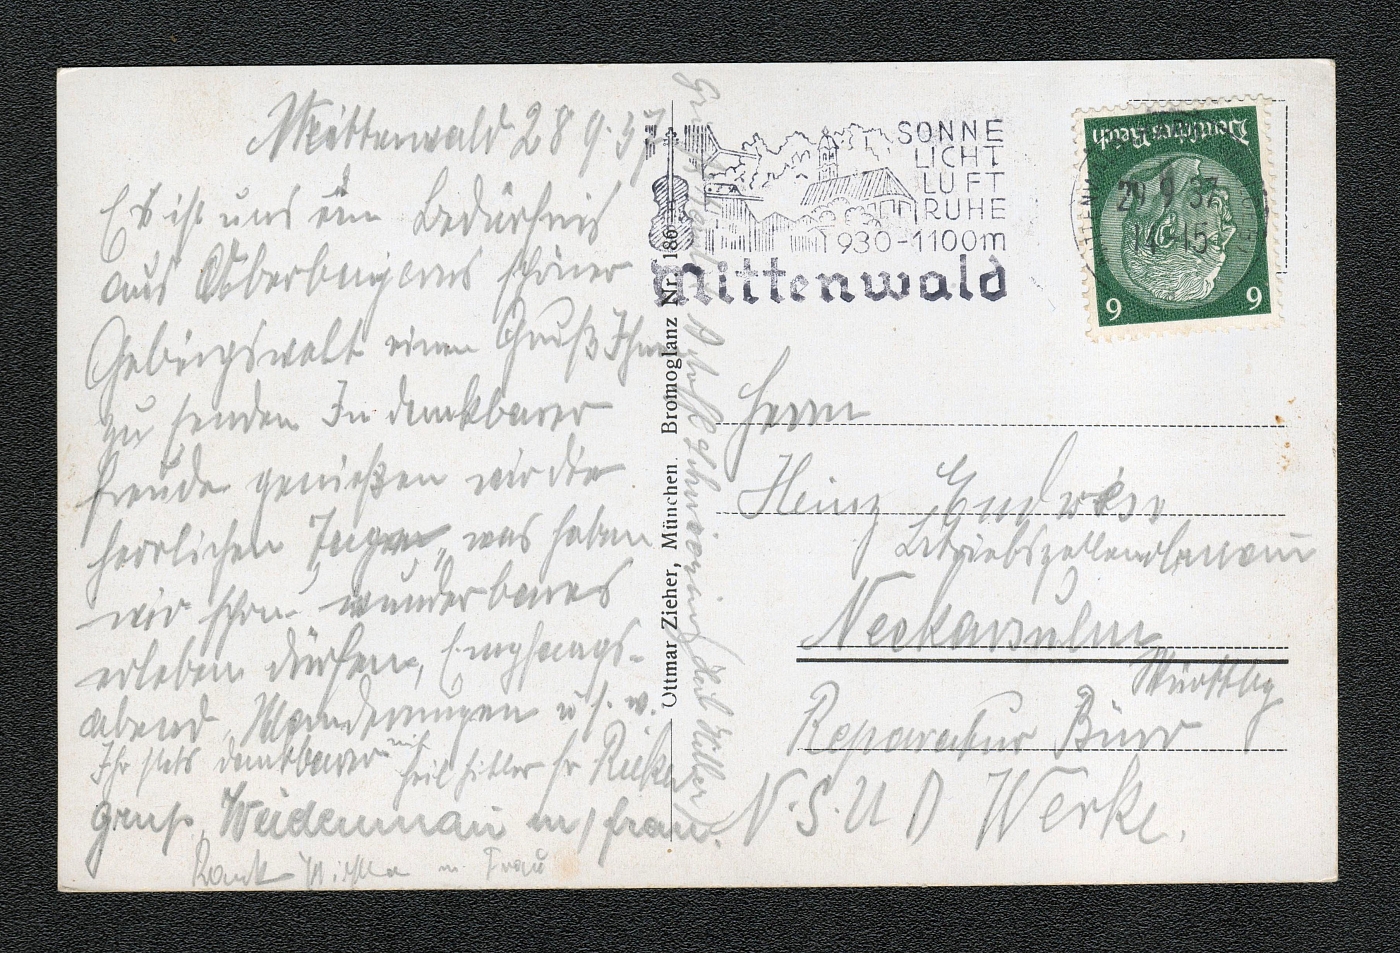 Mittenwald 28 9. 37
Es ist uns ein Bedürfnis
aus Oberbayerns schöner
Gebirgswelt einen Gruß Ihnen
zu senden In dankbarer
Freude genießen wir die
herrlichen Tage, was haben
wir schon wunderbares
erleben dürfen, Empfangs-
abend, Wanderungen u. s. w.
Ihr stets dankbarer
mit Heil Hitler
gruß, Weidenmann u. Frau.
u. Frau
Ottmar Zieher, München. Bromoglanz Nr. 180
SONNE
LICHT
LUFT
RUHE
930-1100m
Mittenwald
Deutsches Reich
29 9 37
6 6
Herrn
Heinz
Betriebszellenobmann
Neckarsulm
Württbg
Reparatur Büro
N. S. U D Werke.